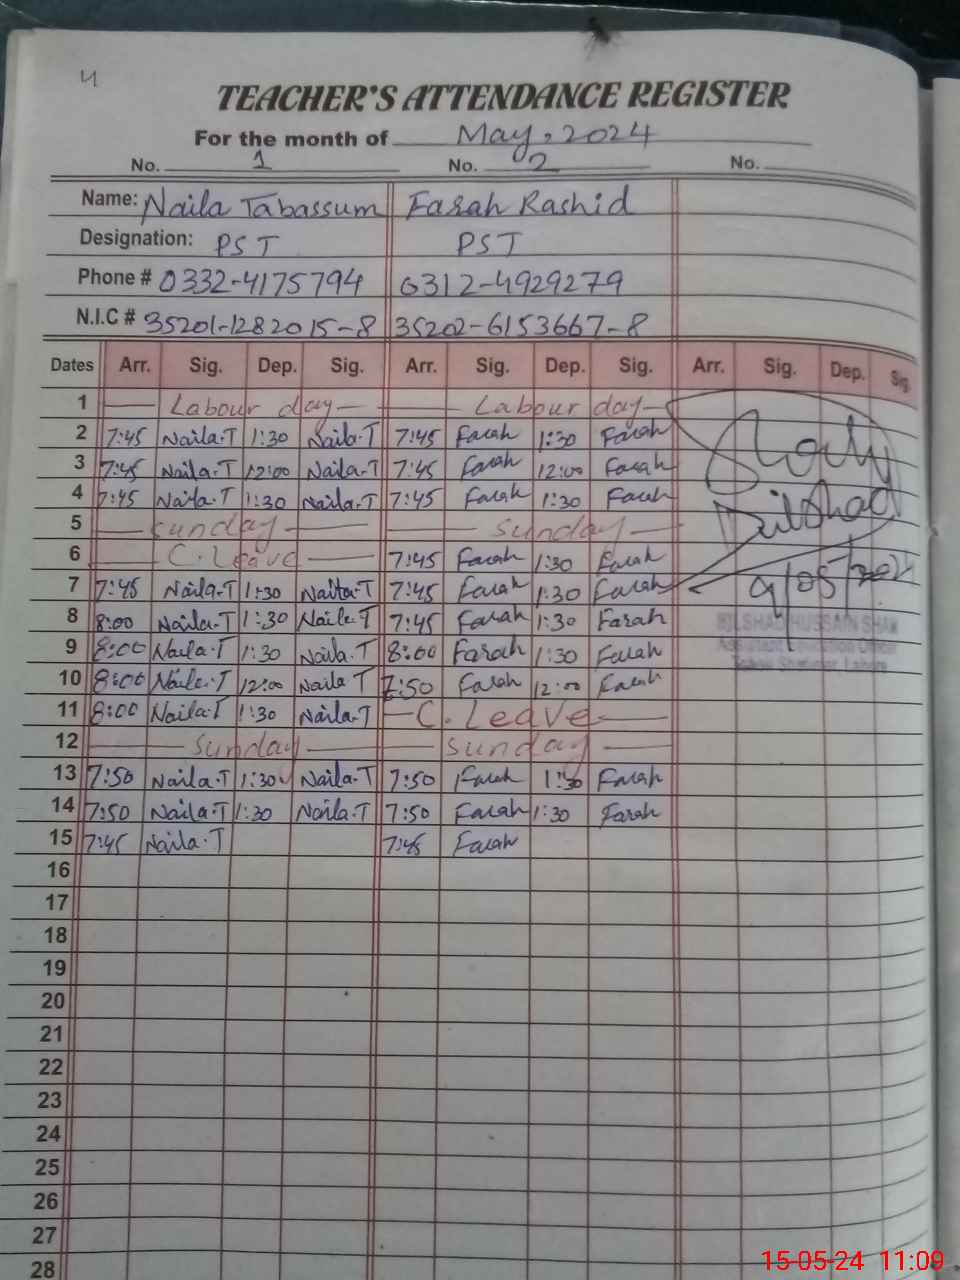 4
TEACHER'S ATTENDANCE REGISTER
For the month of May, 2024
No. 1 No. 2 No.
Name: Naila Tabassum Farah Rashid
Designation: PST PST
Phone # 0332-4175794 0312-4929279
N.I.C # 35201-1282015-8 35202-6153667-8
Dates Arr. Sig. Dep. Sig. Arr. Sig. Dep. Sig. Arr. Sig. Dep. Sig.
1 Labour day Labour day
2 7:45 Naila.T 1:30 Naila.T 7:45 Farah 1:30 Farah
3 7:45 Naila.T 12:00 Naila.T 7:45 Farah 12:00 Farah
4 7:45 Naila.T 1:30 Naila.T 7:45 Farah 1:30 Farah
Dilshad
5 Sunday Sunday
6 C.Leave 7:45 Farah 1:30 Farah
7 7:45 Naila.T 1:30 Naila.T 7:45 Farah 1:30 Farah
9/05/2024
8 8:00 Naila.T 1:30 Naila.T 7:45 Farah 1:30 Farah
DILSHAD HUSSAIN SHAH
9 8:00 Naila.T 1:30 Naila.T 8:00 Farah 1:30 Farah
Assistant Education Officer
Lahore
10 8:00 Naila.T 12:00 Naila T 7:50 Farah 12:00 Farah
11 8:00 Naila.T 1:30 Naila.T C. Leave
12 Sunday Sunday
13 7:50 Naila.T 1:30 Naila.T 7:50 Farah 1:30 Farah
14 7:50 Naila.T 1:30 Naila.T 7:50 Farah 1:30 Farah
15 7:45 Naila.T 7:45 Farah
16
17
18
19
20
21
22
23
24
25
26
27
28
15-05-24 11:09